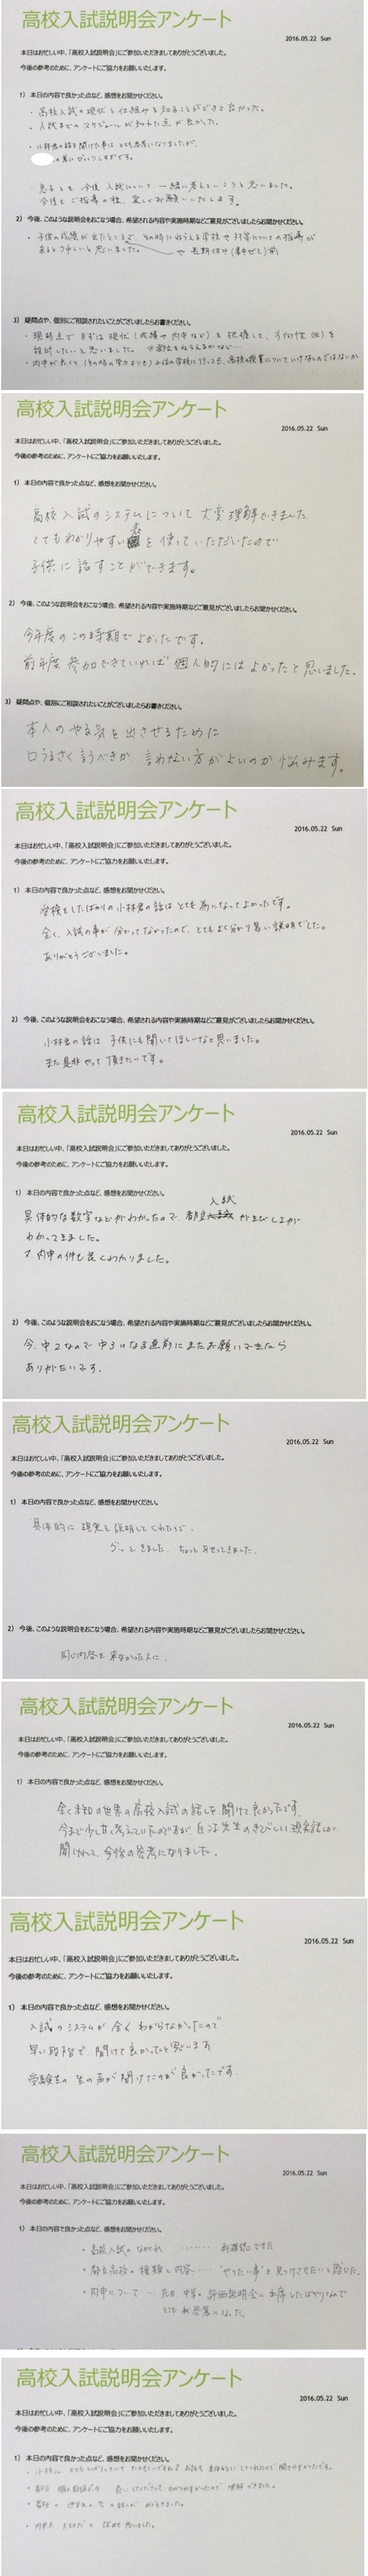 高校入試説明会アンケート
2016.05.22 Sun
本日はお忙しい中、「高校入試説明会」にご参加いただきましてありがとうございました。
今後の参考のために、アンケートにご協力をお願いいたします。
1) 本日の内容で良かった点など、感想をお聞かせください。
・高校入試の現状と仕組みを知ることができて良かった。
・入試までのスケジュールが知れた点が良かった。
・小林君の話を聞けた事はとても参考になりましたが、
の差にびっくりもです。
息子とも今後入試について一緒に考えていこうと思いました。
今後もご指導の程、宜しくお願いいたします。
2) 今後、このような説明会をおこなう場合、希望される内容や実施時期などご意見がございましたらお聞かせください。
・子供の成績が出たところで、その時にねらえる学校や対策についての指導が
あるとうれしいと思いました。
3) 疑問点や、個別にご相談されたいことがございましたらお書きください。
・現時点でまずは現状(成績や内申など)を把握して、方向性(他)を
検討したいと思いました。
高校入試説明会アンケート
2016.05.22 Sun
本日はお忙しい中、「高校入試説明会」にご参加いただきましてありがとうございました。
今後の参考のために、アンケートにご協力をお願いいたします。
1) 本日の内容で良かった点など、感想をお聞かせください。
高校入試のシステムについて大変理解できました
とてもわかりやすい表を使っていただいたので
子供に話すことができます。
2) 今後、このような説明会をおこなう場合、希望される内容や実施時期などご意見がございましたらお聞かせください。
今年度のこの時期でよかったです。
前年度参加できていれば個人的にはよかったと思いました。
3) 疑問点や、個別にご相談されたいことがございましたらお書きください。
本人のやる気を出させるために
口うるさく言うべきか言わない方がよいのか悩みます。
高校入試説明会アンケート
2016.05.22 Sun
本日はお忙しい中、「高校入試説明会」にご参加いただきましてありがとうございました。
今後の参考のために、アンケートにご協力をお願いいたします。
1) 本日の内容で良かった点など、感想をお聞かせください。
受検をしたばかりの小林君の話はとても為になってよかったです。
全く、入試の事が分かってなかったので、とてもよく分かり易い説明でした。
ありがとうございました。
2) 今後、このような説明会をおこなう場合、希望される内容や実施時期などご意見がございましたらお聞かせください。
小林君の話は子供にも聞いてほしいなと思いました。
また是非やって頂きたいです。
高校入試説明会アンケート
2016.05.22 Sun
本日はお忙しい中、「高校入試説明会」にご参加いただきましてありがとうございました。
今後の参考のために、アンケートにご協力をお願いいたします。
1) 本日の内容で良かった点など、感想をお聞かせください。
具体的な数字などがわかったので、都立入試がきびしさが
わかってきました。
又、内申の件も良くわかりました。
2) 今後、このような説明会をおこなう場合、希望される内容や実施時期などご意見がございましたらお聞かせください。
今、中2なので中3になる直前にまたお願いできたら
ありがたいです。
高校入試説明会アンケート
2016.05.22 Sun
本日はお忙しい中、「高校入試説明会」にご参加いただきましてありがとうございました。
今後の参考のために、アンケートにご協力をお願いいたします。
1) 本日の内容で良かった点など、感想をお聞かせください。
具体的に現実を説明してくれたので、
グッときました。ちょっとあせってきました。
2) 今後、このような説明会をおこなう場合、希望される内容や実施時期などご意見がございましたらお聞かせください。
同じ内容を来なかった人に。
高校入試説明会アンケート
2016.05.22 Sun
本日はお忙しい中、「高校入試説明会」にご参加いただきましてありがとうございました。
今後の参考のために、アンケートにご協力をお願いいたします。
1) 本日の内容で良かった点など、感想をお聞かせください。
全く未知の世界の高校入試の話しを聞けて良かったです。
今まで少し甘く考えていたのですが先生のきびしい現実話しが
聞けれて、今後の参考になりました。
高校入試説明会アンケート
2016.05.22 Sun
本日はお忙しい中、「高校入試説明会」にご参加いただきましてありがとうございました。
今後の参考のために、アンケートにご協力をお願いいたします。
1) 本日の内容で良かった点など、感想をお聞かせください。
入試のシステムが全くわからなかったので
早い段階で聞けて良かったと思います
受験生の生の声が聞けたのが良かったです。
高校入試説明会アンケート
2016.05.22 Sun
本日はお忙しい中、「高校入試説明会」にご参加いただきましてありがとうございました。
今後の参考のために、アンケートにご協力をお願いいたします。
1) 本日の内容で良かった点など、感想をお聞かせください。
・高校入試のながれ ……… 再確認できた
・都立高校の種類と内容……"やりたい事"を見つけさせたいと感じた。
・内申について…先日、中学の評価説明会に出席したばかりなので
とても参考になった。
高校入試説明会アンケート
2016.05.22 Sun
本日はお忙しい中、「高校入試説明会」にご参加いただきましてありがとうございました。
今後の参考のために、アンケートにご協力をお願いいたします。
1) 本日の内容で良かった点など、感想をお聞かせください。